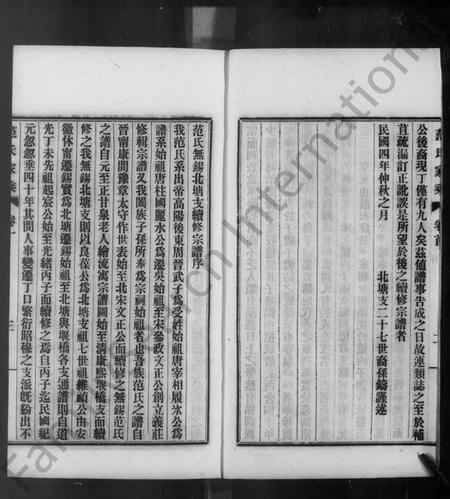 范氏家乘
卷首
二
公後裔現丁僅有九人矣茲值譜事告成之日故連類誌之至於補
苴疏漏訂正訛誤是所望於後之續修宗譜者
民國四年仲秋之月
北塘支二十七世裔孫鑄謹述
范氏無錫北塘支續修宗譜序
我范氏系出帝高陽後東周晉武子為受姓始祖唐宰相履氷公為
譜系始祖唐柱國麗水公為遷吳始祖至宋參政文正公創立義莊
修輯宗譜又我闔族子孫所奉為宗祠始祖者也吾族范氏之譜自
晉甯康間豫章太守作世表始至北宋文正公而續修之無錫范氏
之譜自元至正甘泉老人繪流寓宗譜圖始至清康熙堰橋支而續
修之我無錫北塘支則以良保公為北塘支祖七世祖維顯公由安
徽休甯遷錫實為北塘遷錫始祖至北塘與堰橋各支通譜則自道
光丁未先祖起宸公始至光緒丙子而續修之焉自丙子迄民國紀
元忽忽垂四十年其間人事變遷丁口繁衍昭穆之支派既紛出不
范氏家乘
卷一
三
Family Search International